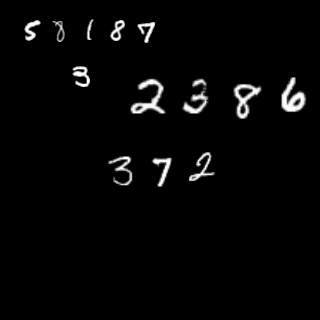 58187
3
2386
372